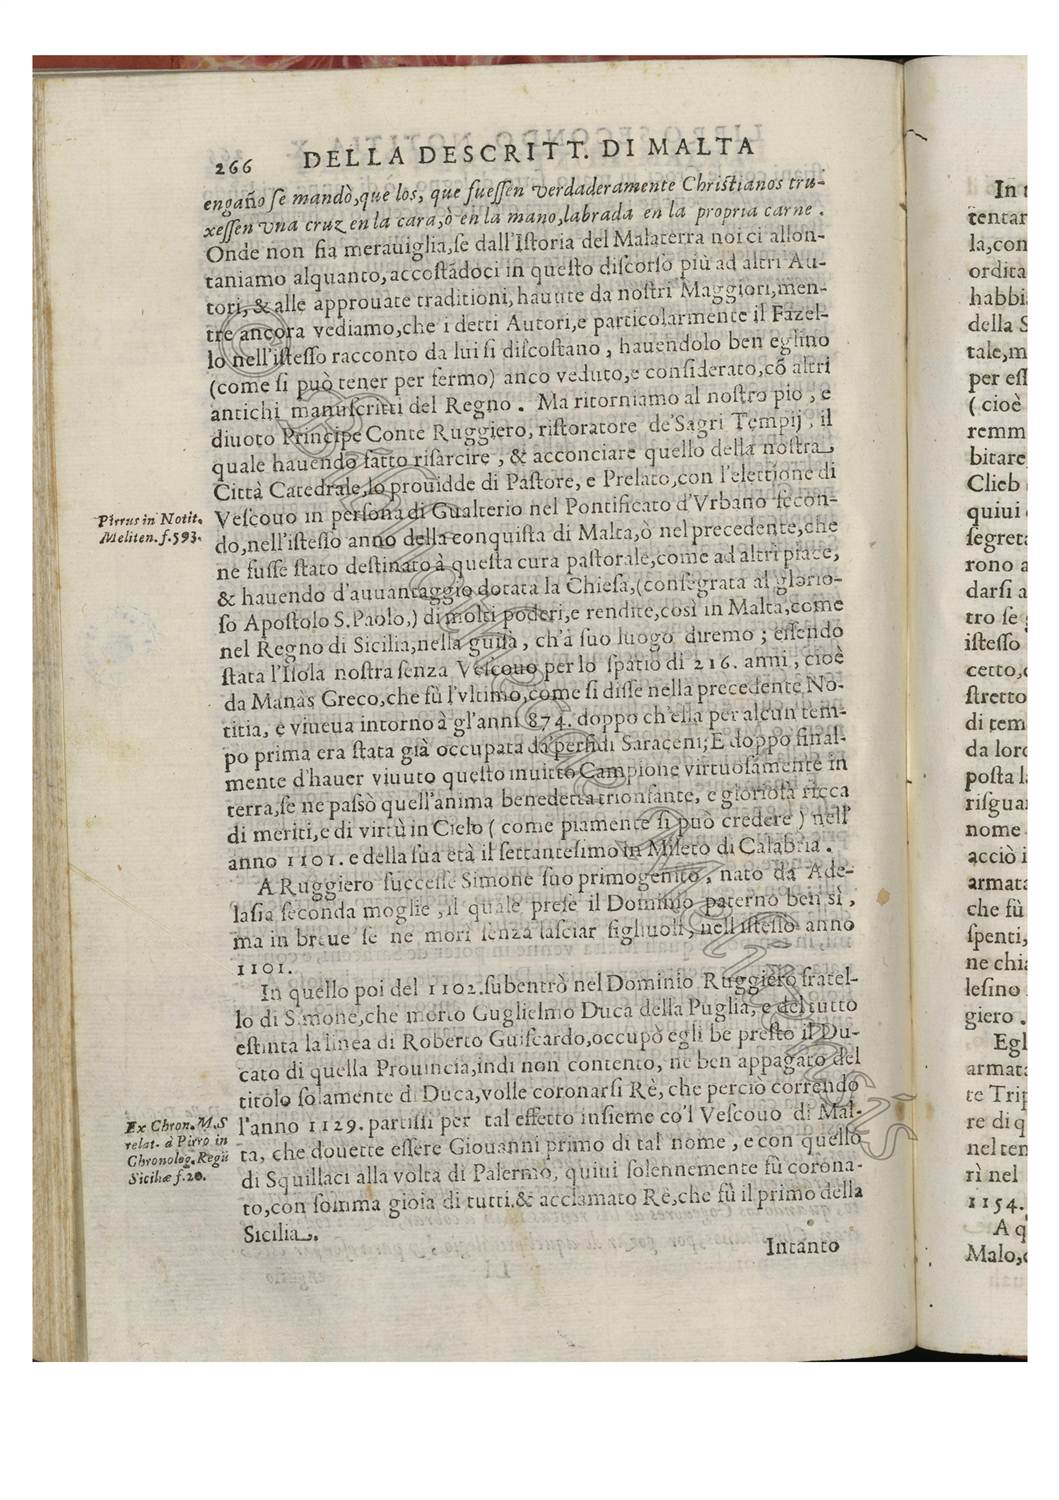 266 DELLA DESCRITT. DI MALTA
engaño ſe mandò,que los, que fueſſen verdaderamente Chriſtianos tru-
xeſſen vna cruz en la cara,ò en la mano,labrada en la propria carne .
Onde non ſia merauiglia,ſe dall'Iſtoria del Malaterra noi ci allon-
taniamo alquanto,accoſtãdoci in queſto diſcorſo più ad altri Au-
tori, & alle approuate traditioni, hauute da noſtri Maggiori,men-
tre ancora vediamo,che i detti Autori,e particolarmente il Fazel-
lo nell'iſteſſo racconto da lui ſi diſcoſtano , hauendolo ben eglino
(come ſi può tener per fermo) anco veduto,e conſiderato,cõ altri
antichi manuſcritti del Regno . Ma ritorniamo al noſtro pio , e
diuoto Principe Conte Ruggiero, riſtoratore de'Sagri Tempij , il
quale hauendo fatto riſarcire , & acconciare quello della noſtra
Città Catedrale,lo prouidde di Paſtore, e Prelato,con l'elettione di
Veſcouo in perſona di Gualterio nel Pontificato d'Vrbano ſecon-
do,nell'iſteſſo anno della conquiſta di Malta,ò nel precedente,che
ne fuſſe ſtato deſtinato à queſta cura paſtorale,come ad altri piace,
& hauendo d'auuantaggio dotata la Chieſa,(conſegrata al glorio-
ſo Apoſtolo S.Paolo,) di molti poderi,e rendite,così in Malta,come
nel Regno di Sicilia,nella guiſa , ch'à ſuo luogo diremo ; eſſendo
ſtata l'Iſola noſtra ſenza Veſcouo per lo ſpatio di 216. anni , cioè
da Manàs Greco,che fù l'vltimo,come ſi diſſe nella precedente No-
titia, e viueua intorno à gl'anni 874. doppo ch'ella per alcun tem-
po prima era ſtata già occupata da perfidi Saraceni; E doppo final-
mente d'hauer viuuto queſto inuitto Campione virtuoſamente in
terra,ſe ne paſsò quell'anima benedetta trionfante, e glorioſa ricca
di meriti,e di virtù in Cielo ( come piamente ſi può credere ) nell'
anno 1101. e della ſua età il ſettanteſimo in Mileto di Calabria .
A Ruggiero ſucceſſe Simone ſuo primogenito , nato da Ade-
laſia ſeconda moglie , il quale preſe il Dominio paterno ben sì ,
ma in breue ſe ne morì ſenza laſciar figliuoli , nell'iſteſſo anno
1101.
In quello poi del 1102.ſubentrò nel Dominio Ruggiero fratel-
lo di Simone,che morto Guglielmo Duca della Puglia, e del tutto
eſtinta la linea di Roberto Guiſcardo,occupò egli be preſto il Du-
cato di quella Prouincia,indi non contento, ne ben appagato del
titolo ſolamente di Duca,volle coronarſi Rè, che perciò correndo
l'anno 1129. partiſſi per tal effetto inſieme co'l Veſcouo di Mal-
ta, che douette eſſere Giouanni primo di tal nome , e con quello
di Squillaci alla volta di Palermo, quiui ſolennemente fù corona-
to,con ſomma gioia di tutti,& acclamato Rè,che fù il primo della
Sicilia.
Intanto
Pirrus in Notit.
Meliten.f.593.
Ex Chron. M.S
relat. à Pirro in
Chronolog.Regū
Siciliæ f.20.
tentar
la,con
ordita
habbi
della S
tale,m
( cioè
remm
bitare
Clieb
quiui
ſegret
rono a
darſi a
tro ſe
iſteſſo
cetto,
ſtretto
di tem
da lor
poſta l
riſgua
nome
acciò i
armata
che fù
ſpenti,
ne chi
leſino
giero .
Egl
armata
te Trip
re di q
nel ten
rì nel
1154.
A q
Malo,